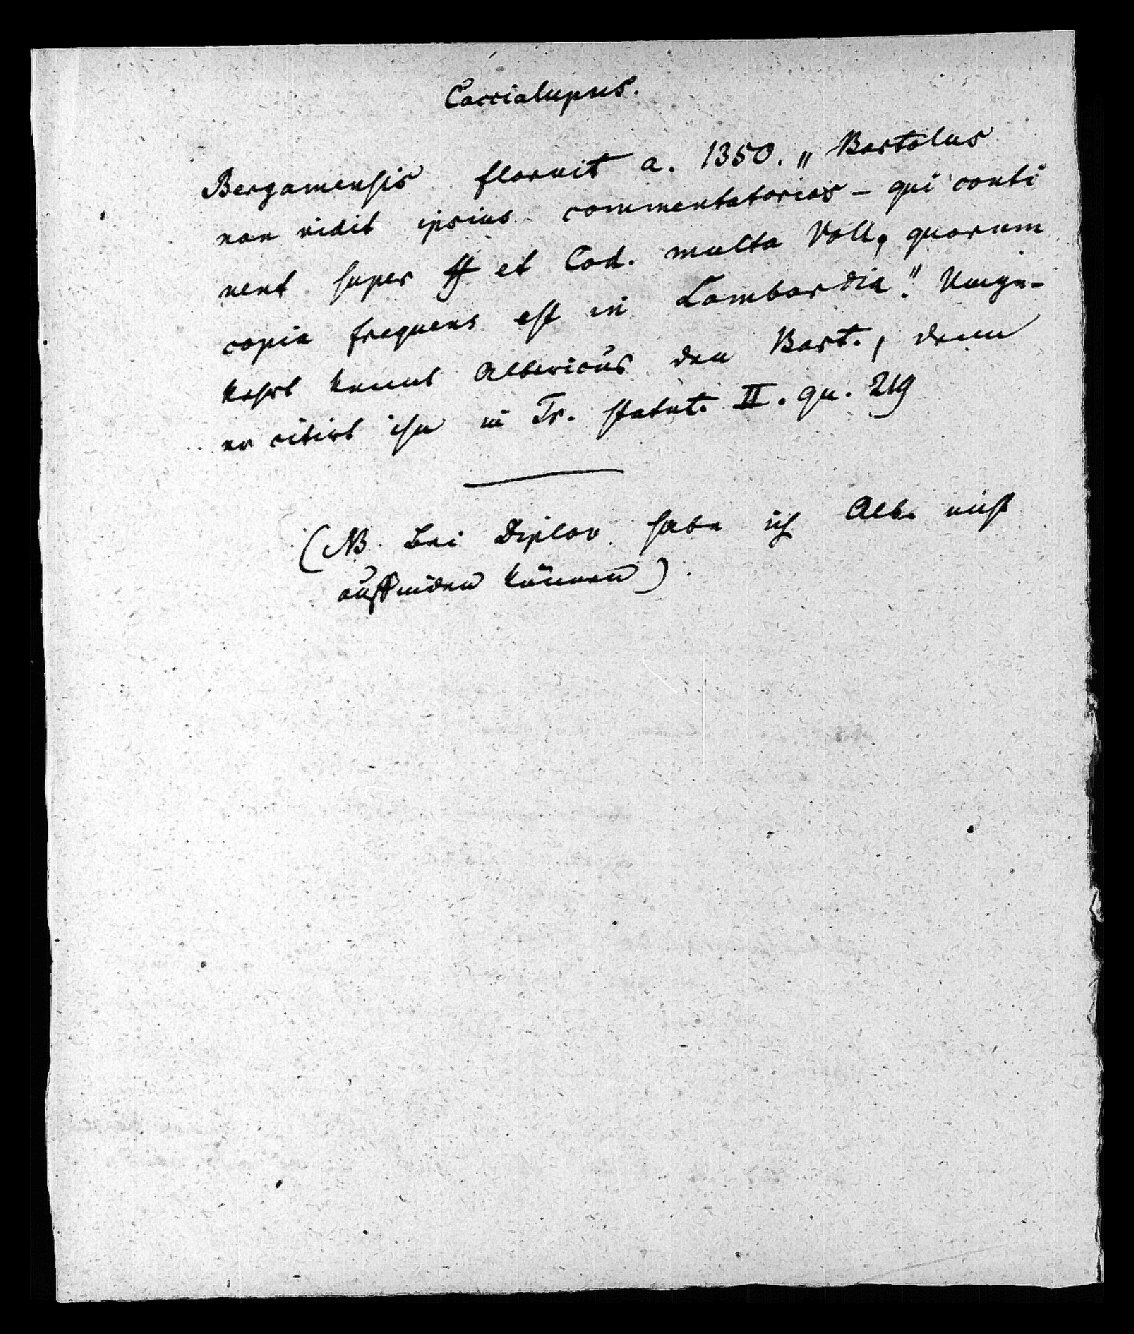 Caccialupus.
Bergamensis floruit a. 1350. „Bartolus
non vidit ipsius commentatorios – qui conti
nent super ff et Cod. multa Voll, quorum
copia frequens est in Lombardia." Umge-
kehrt kennt Albericus den Bart., denn
er citirt ihn in Tr. statut. II. qu. 219
(NB. Bei Diplov. habe ich Alb. nicht
auffinden können)